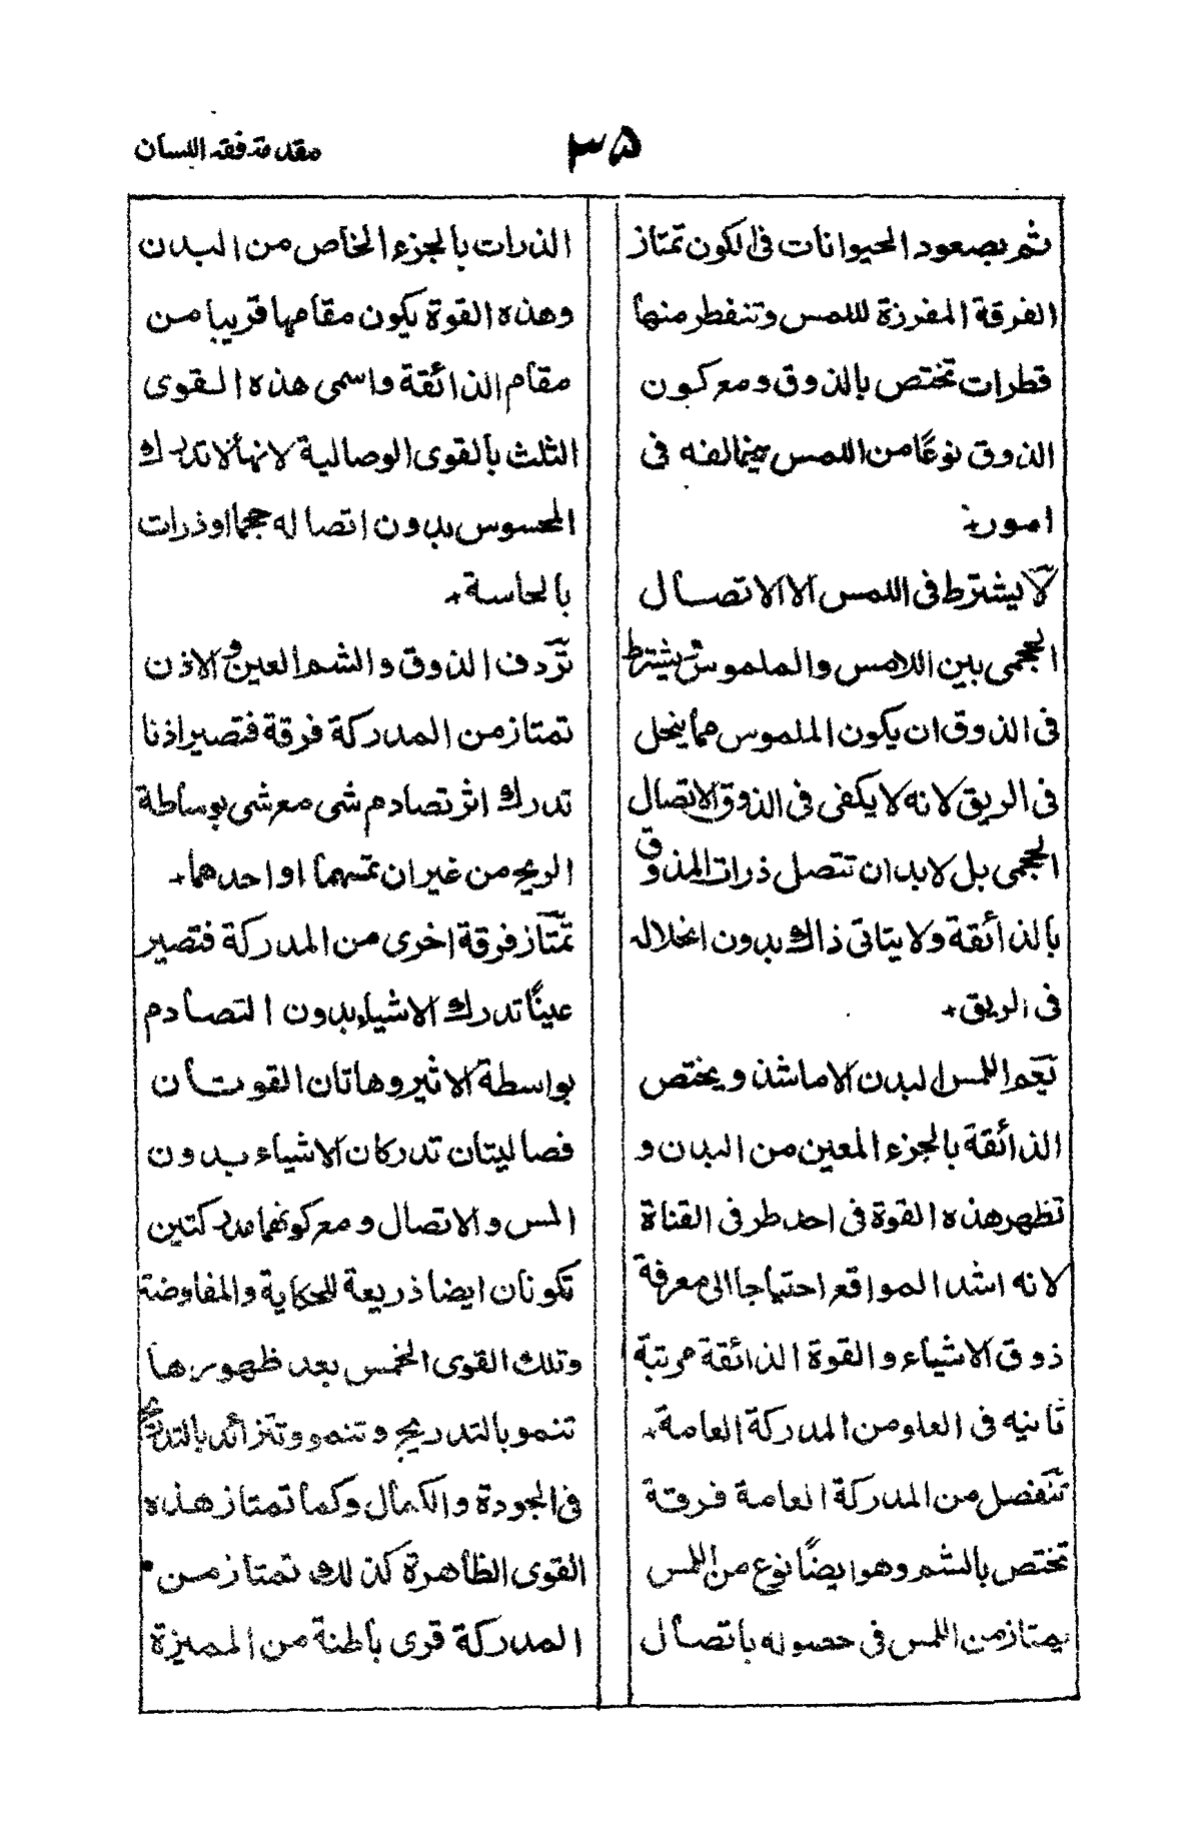 مقدمة فقه اللسان
٣٥
ثم بصعود الحيوانات فى الكون تمتاز
الفرقة المفرزة للمس وتنفطر منها
قطرات تختص بالذوق ومع كون
الذوق نوعًا من اللمس يخالفه فى
امور؛
لا يشترط فى اللمس الا الاتصال
الحجمى بين اللامس والملموس ويشترط
فى الذوق ان يكون الملموس مما ينحل
فى الريق لانه لا يكفى فى الذوق الاتصال
الحجمى بل لابد ان تتصل ذرات المذوق
بالذائقة ولا يتاتى ذالك بدون انحلاله
فى الريق٭
تعم اللمس البدن الا ما شذ ويختص
الذائقة بالجزء المعين من البدن و
تظهر هذه القوة فى احد طرفى القناة
لانه اشد المواقع احتياجا الى معرفة
ذوق الاشياء والقوة الذائقة مرتبة
ثانيه فى العلو من المدركة العامة٭
تنفصل من المدركة العامة فرقة
تختص بالشم وهو ايضًا نوع من اللمس
يمتاز من اللمس فى حصوله باتصال
الذرات بالجزء الخاص من البدن
وهذه القوة يكون مقامها قريبا من
مقام الذائقة واسمى هذه القوى
الثلث بالقوى الوصالية لانها لا تدرك
المحسوس بدون اتصاله حجما او ذرات
بالحاسة٭
تردف الذوق والشم العين والاذن
تمتاز من المدركة فرقة فتصير اذنا
تدرك اثر تصادم شى مع شى بوساطة
الريح من غير ان تمسهما او احدهما٭
تمتاز فرقة اخرى من المدركة فتصير
عينًا تدرك الاشياء بدون التصادم
بواسطة الاثير وهاتان القوتان
فصاليتان تدركان الاشياء بدون
المس والاتصال ومع كونهما مدركتين
تكونان ايضا ذريعة للحكاية والمفاوضة
وتلك القوى الخمس بعد ظهورها
تنمو بالتدريج وتنمو وتتزائد بالتدريج
فى الجودة والكمال وكما تمتاز هذه
القوى الظاهرة كذلك تمتاز من
المدركة قوى باطنة من المميزة